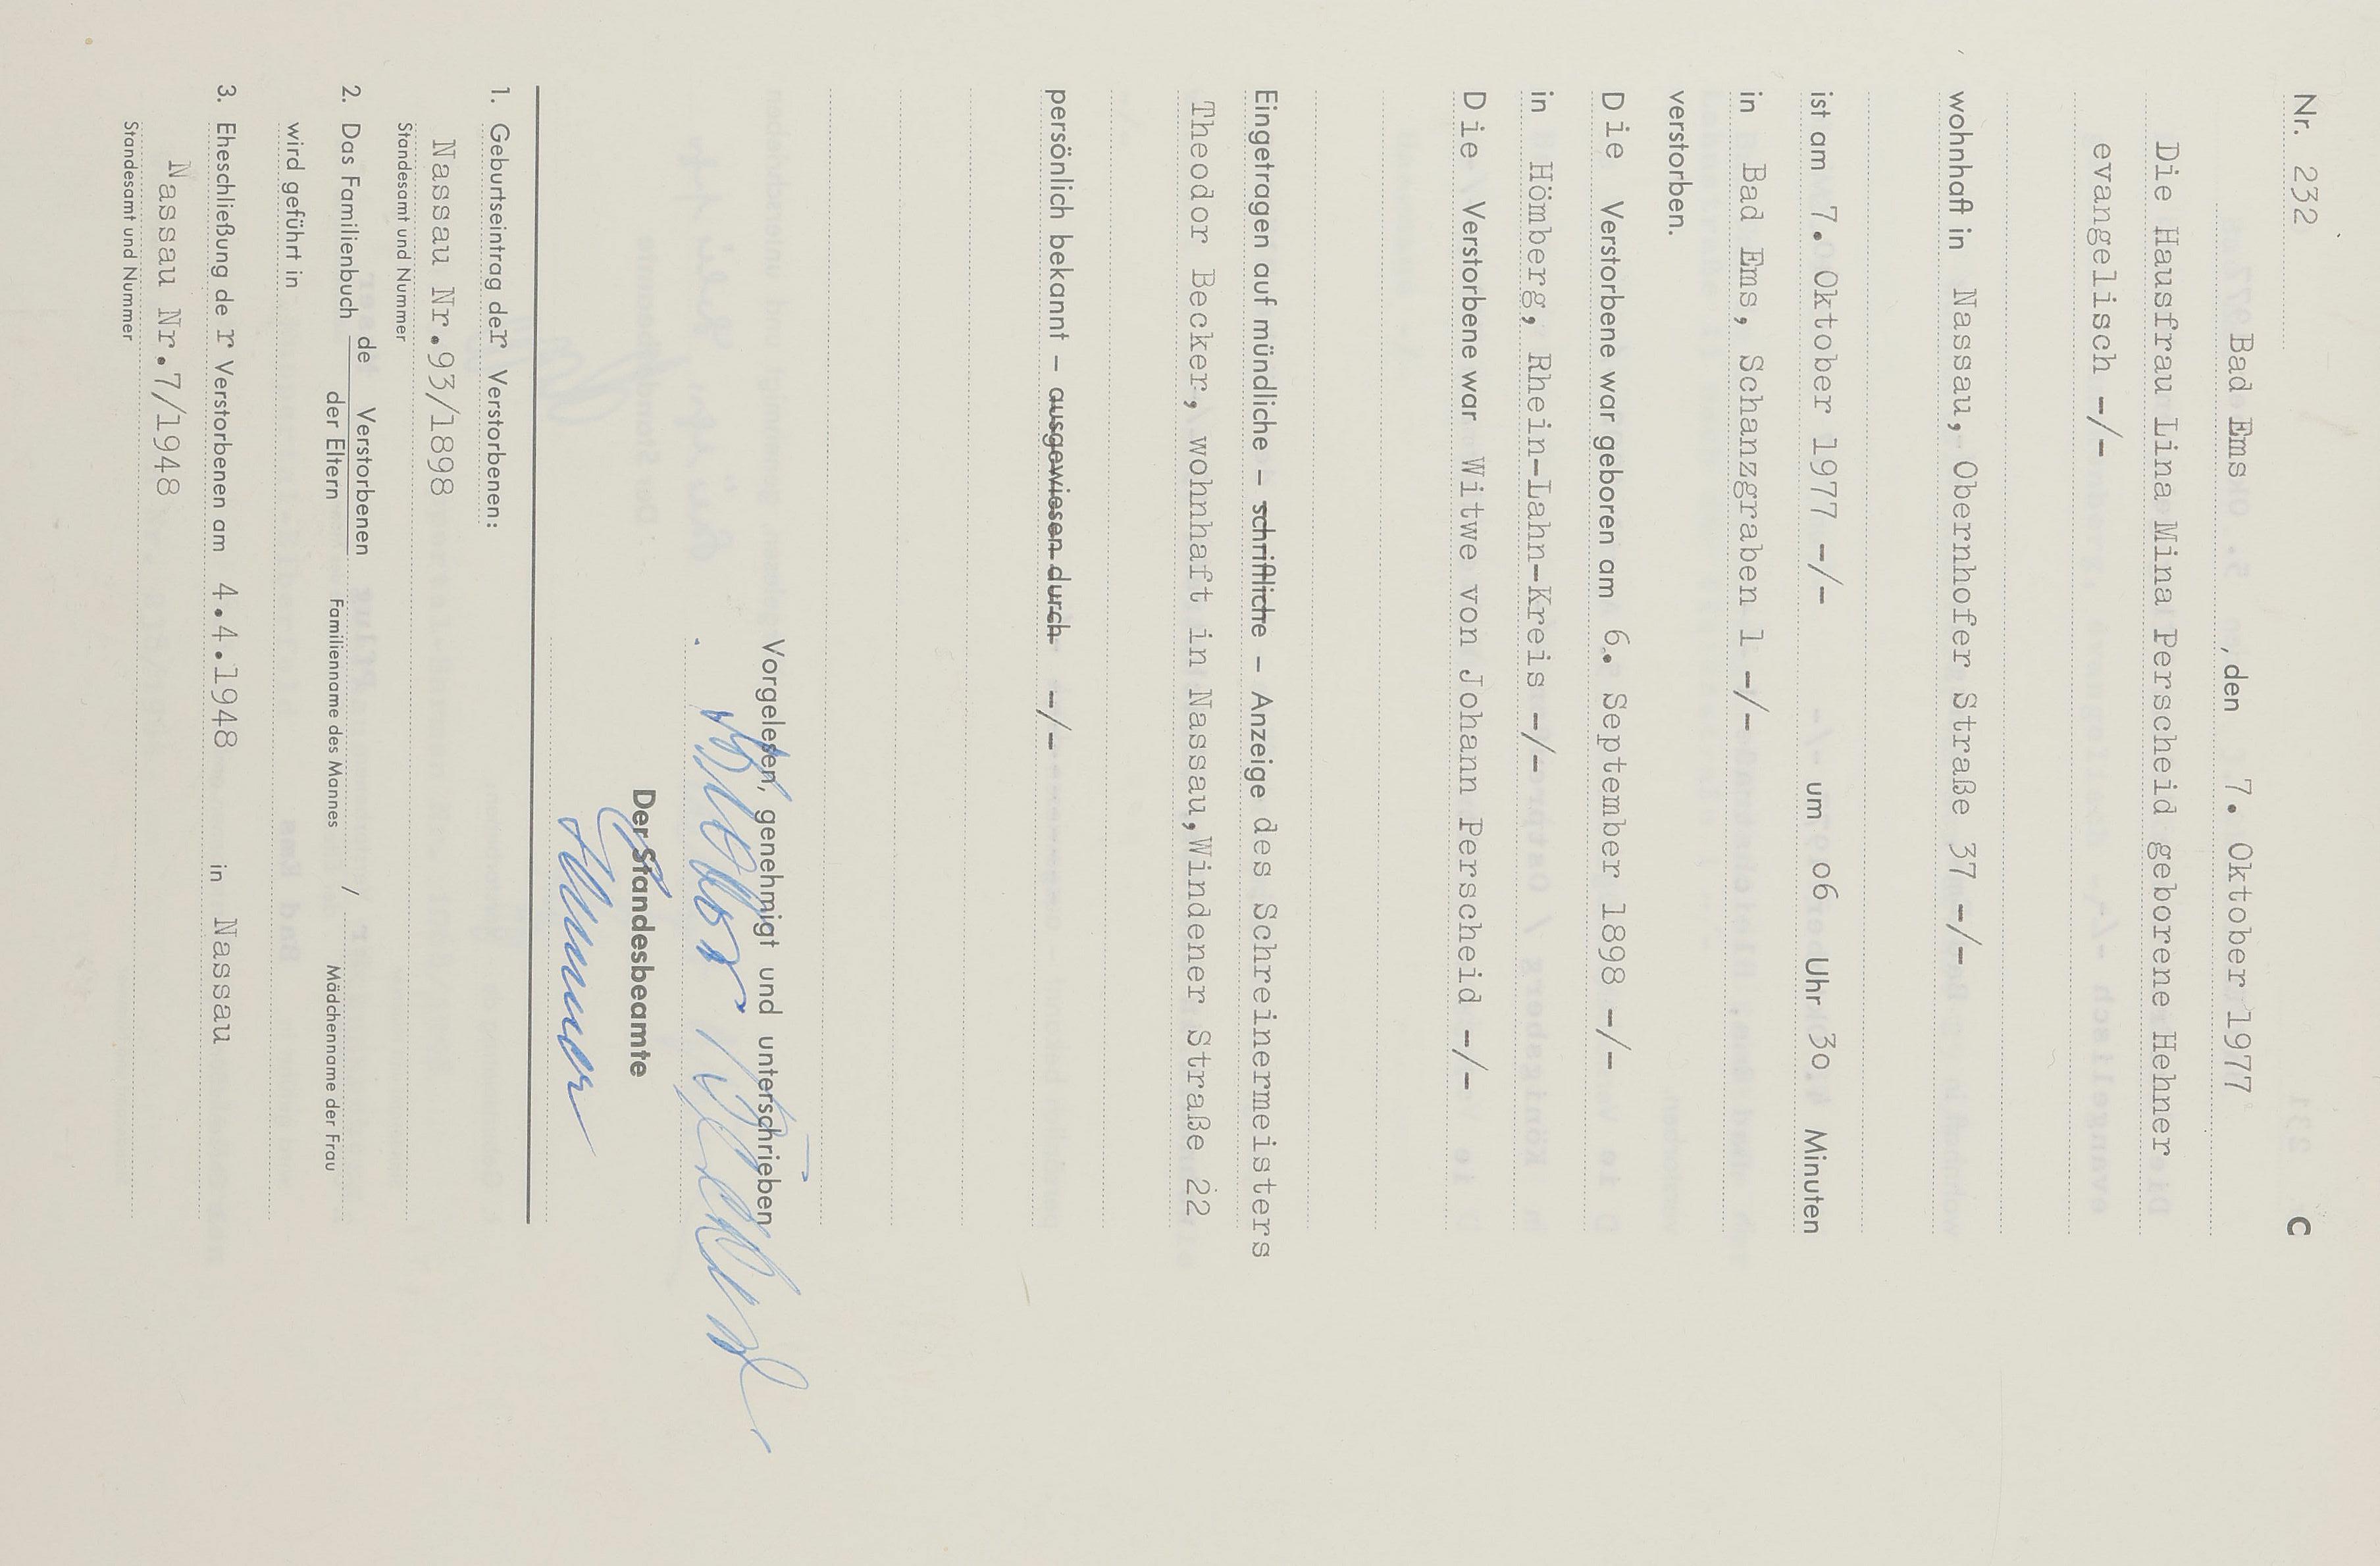 Nr. 232 C
Bad Ems, den 7. Oktober 1977
Die Hausfrau Lina Mina Perscheid geborene Hehner
evangelisch -/-
wohnhaft in Nassau, Obernhofer Straße 37 -/-
ist am 7. Oktober 1977 -/- um o6 Uhr 3o Minuten
in Bad Ems, Schanzgraben 1 -/-
verstorben.
Die Verstorbene war geboren am 6. September 1898 -/-
in Hömberg, Rhein-Lahn-Kreis -/-
Die Verstorbene war Witwe von Johann Perscheid -/-
Eingetragen auf mündliche – schriftliche – Anzeige des Schreinermeisters
Theodor Becker, wohnhaft in Nassau, Windener Straße 22
persönlich bekannt – ausgewiesen durch -/-
Vorgelesen, genehmigt und unterschrieben
Der Standesbeamte
1. Geburtseintrag der Verstorbenen:
Nassau Nr.93/1898
Standesamt und Nummer
2. Das Familienbuch de Verstorbenen /
der Eltern Familienname des Mannes Mädchenname der Frau
wird geführt in
3. Eheschließung der Verstorbenen am 4.4.1948 in Nassau
Nassau Nr.7/1948
Standesamt und Nummer